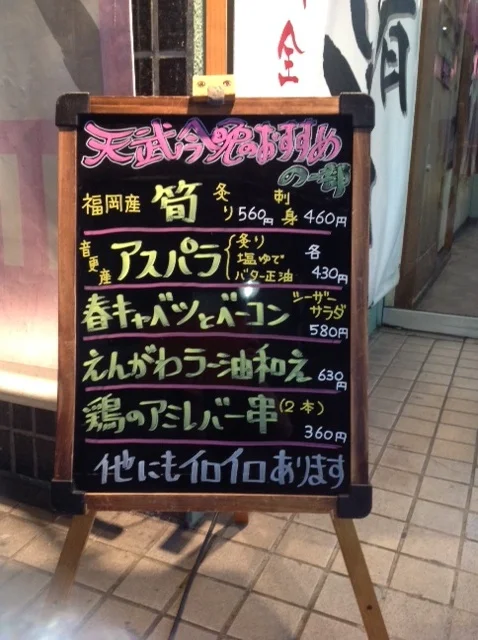 全
天武今晩のおすすめ
の一部
福岡産 筍 炙り560円 刺身460円
音更産 アスパラ 炙り 塩ゆで バター正油 各430円
春キャベツとベーコン シーザーサラダ 580円
えんがわラー油和え 630円
鶏のアミレバー串(2本) 360円
他にもイロイロあります